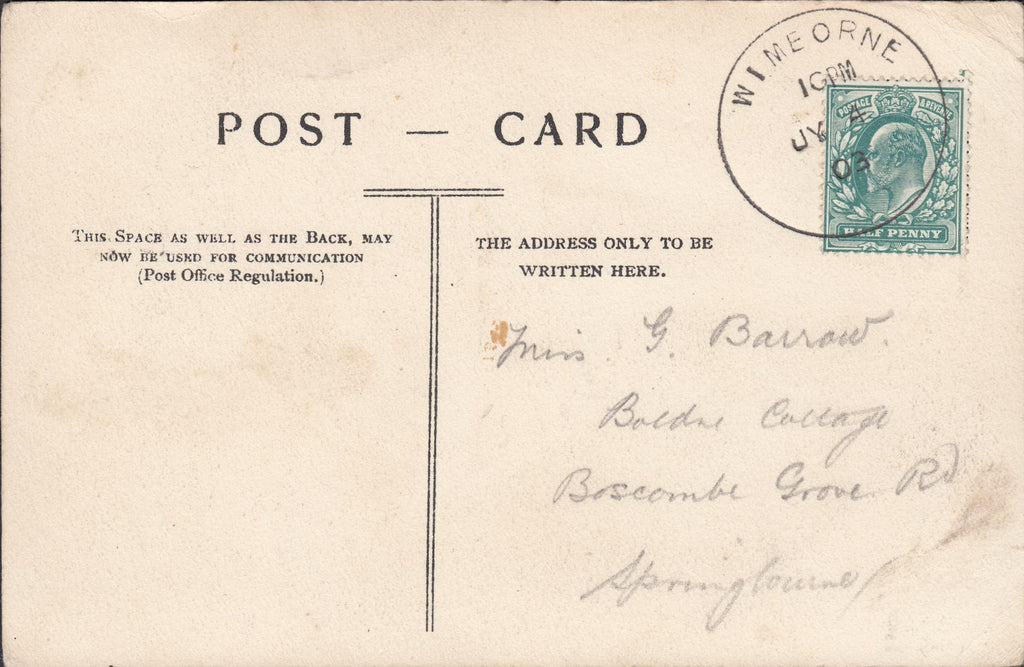 WIMEORNE
1GPM
JY 4
03
POSTAGE & REVENUE
HALF PENNY
POST — CARD
THIS SPACE AS WELL AS THE BACK, MAY
NOW BE USED FOR COMMUNICATION
(Post Office Regulation.)
THE ADDRESS ONLY TO BE
WRITTEN HERE.
Miss. G. Barrow.
Boldre Cottage
Boscombe Grove Rd
Springbourne